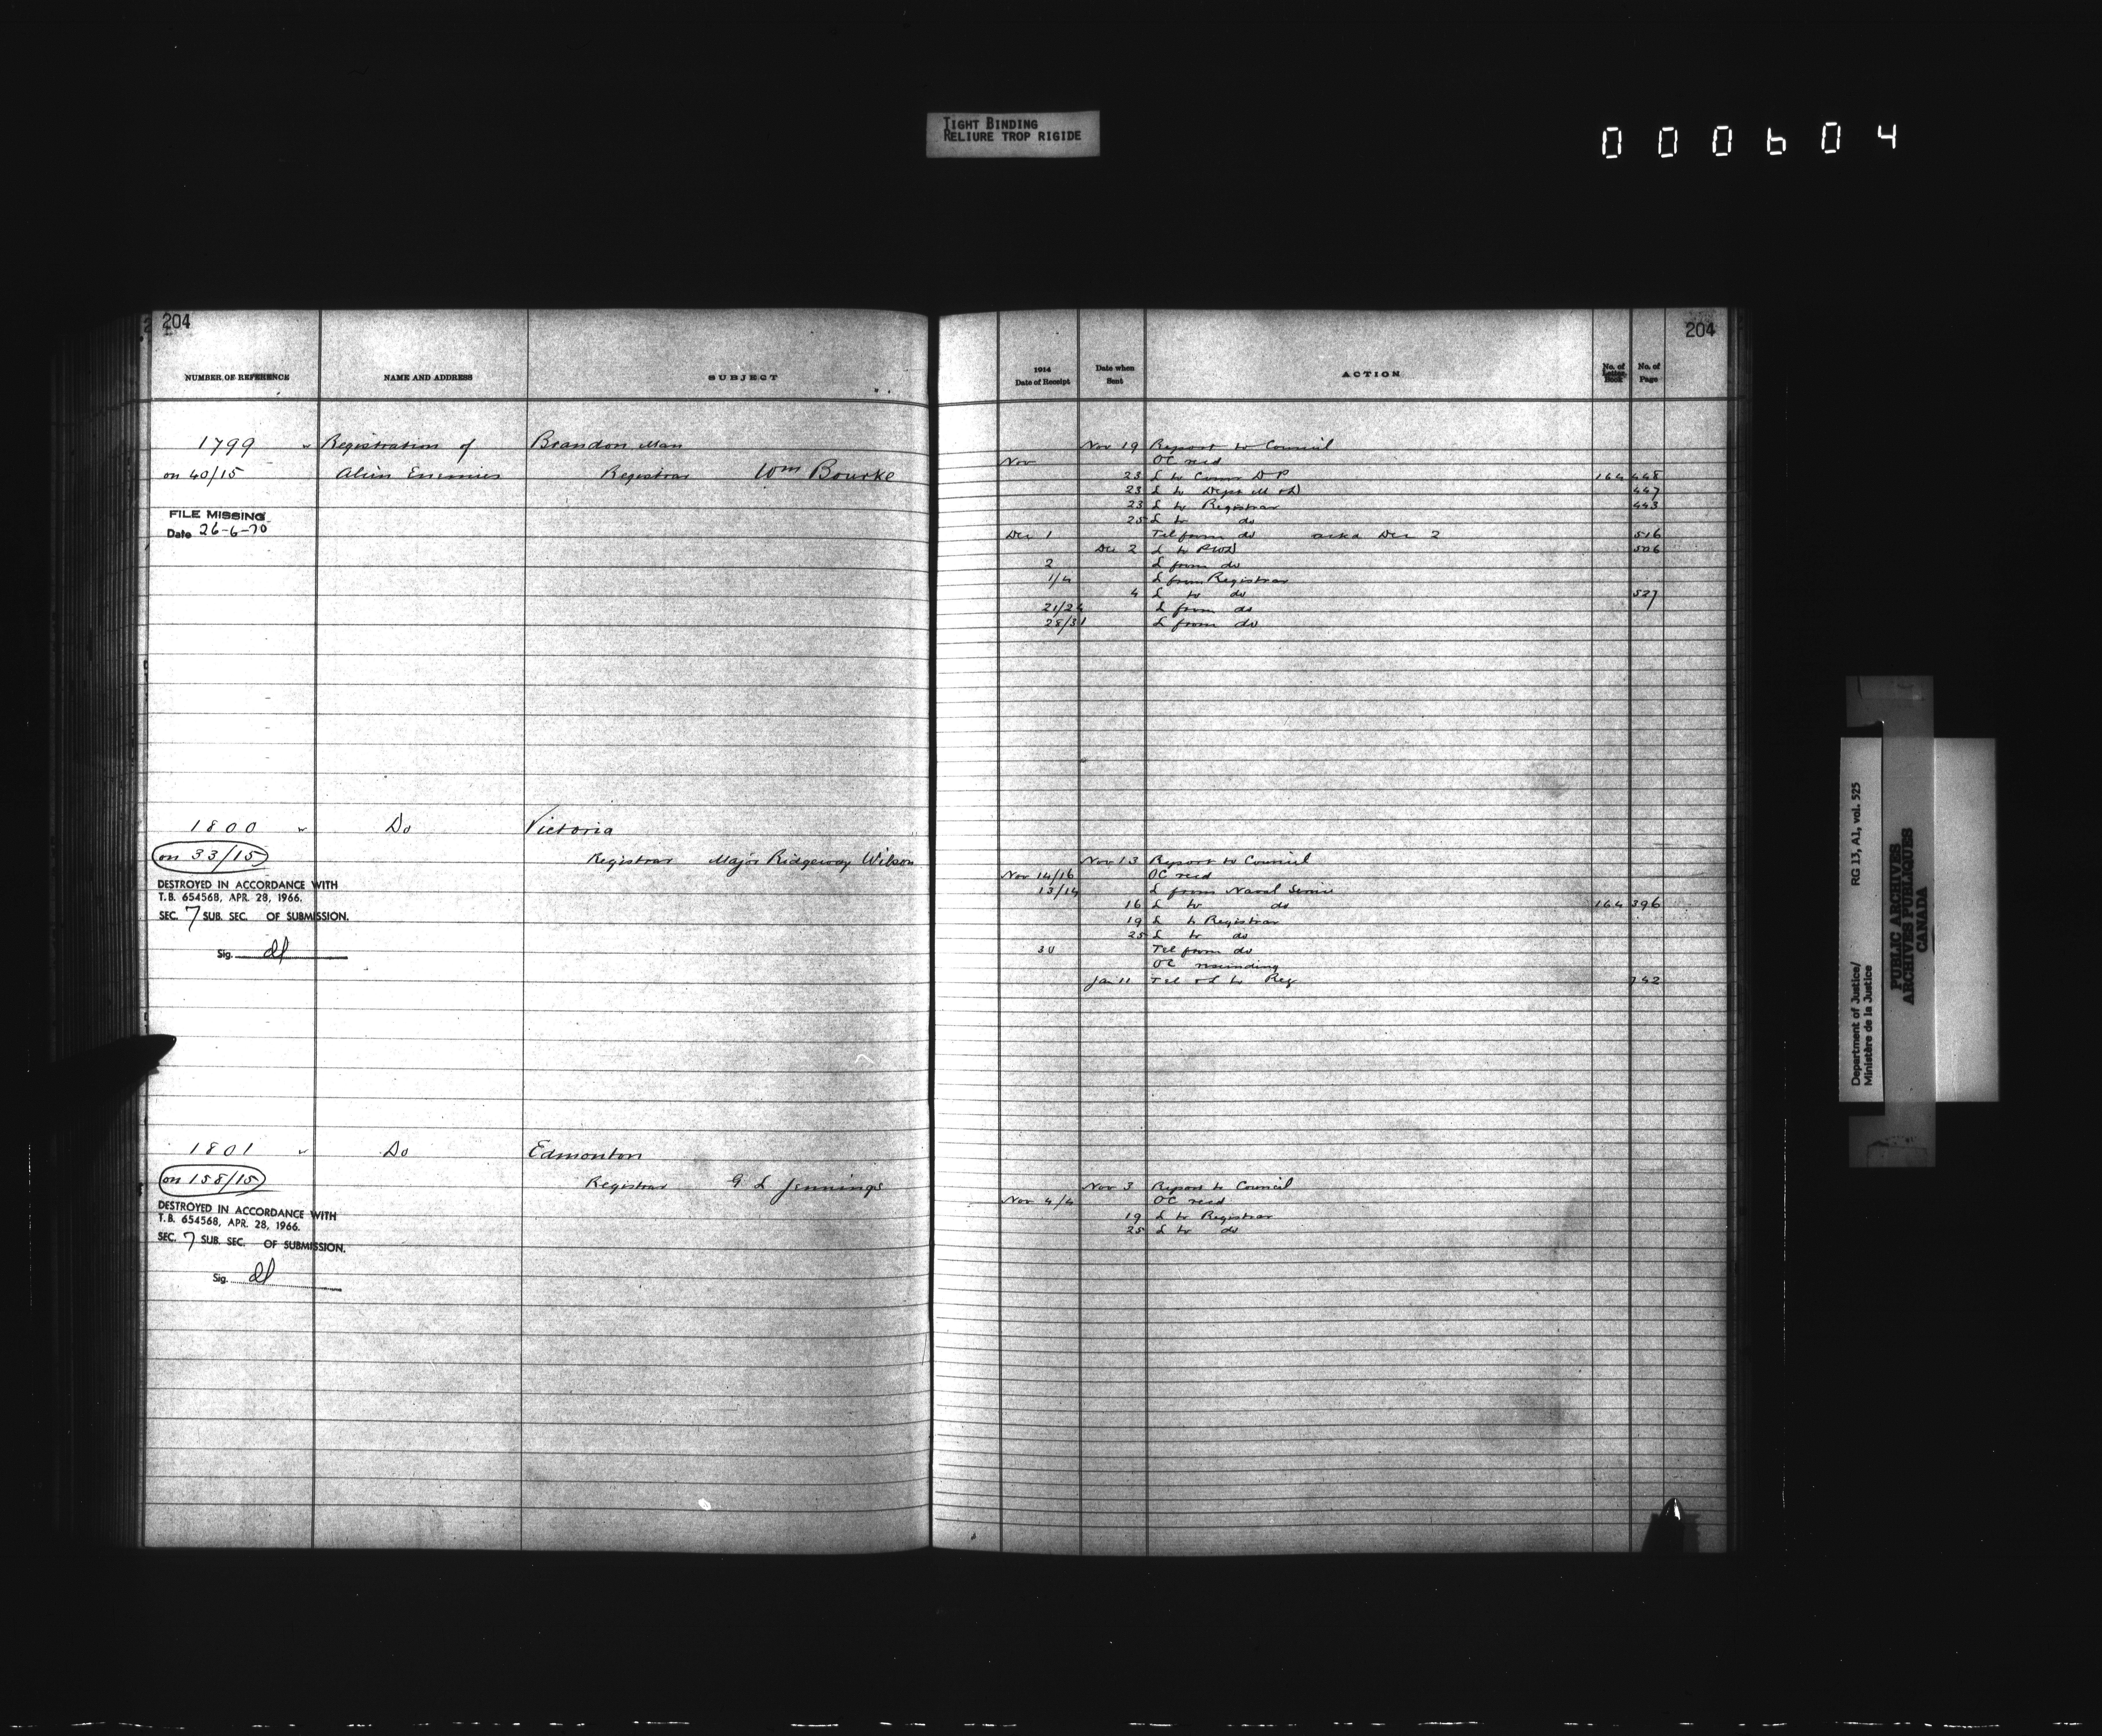 TIGHT BINDING
RELIURE TROP RIGIDE
000604
204
NUMBER OF REFERENCE NAME AND ADDRESS SUBJECT
1799 Registration of Brandon Man
on 40/15 Alien Enemies Registrar Wm Bourke
FILE MISSING
Date 26-6-70
1800 Do Victoria
on 33/15 Registrar Major Ridgeway Wilson
DESTROYED IN ACCORDANCE WITH
T.B. 654568, APR. 28, 1966.
SEC. 7 SUB. SEC. OF SUBMISSION.
Sig.
1801 Do Edmonton
on 158/15 Registrar G L Jennings
DESTROYED IN ACCORDANCE WITH
T.B. 654568, APR. 28, 1966.
SEC. 7 SUB. SEC. OF SUBMISSION.
Sig.
204
1914 Date of Receipt Date when Sent ACTION No. of Letter Book No. of Page
Nov 19 Report to Council
Nov OC recd
23 L to Comr D P 164 448
23 L to Dept M & D 447
23 L to Registrar 443
25 L to do
Dec 1 Tel from do Dec 2 516
Dec 2 L to PWD 506
2 L from do
1/4 L from Registrar
4 L to do 527
21/24 L from do
28/31 L from do
Nov 13 Report to Council
Nov 14/16 OC recd
13/14 L from Naval Service
16 L to do 164 396
19 L to Registrar
25 L to do
30 Tel from do
OC rescinding
Jan 11 Tel & L to Reg 742
Nov 3 Report to Council
Nov 4/4 OC recd
19 L to Registrar
25 L to do
Department of Justice/
Ministère de la Justice
RG 13, A1, vol. 525
PUBLIC ARCHIVES
ARCHIVES PUBLIQUES
CANADA